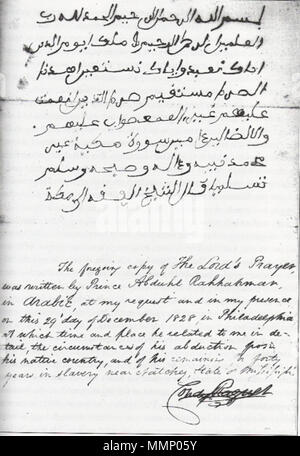 بسم الله الرحمن الرحيم الحمد لله رب
العلمين الرحمن الرحيم ملك يوم الدين
اياك نعبد واياك نستعين اهدنا
مستقيم
عليهم غير المغضوب عليهم
محمد نبيه واله وصحبه وسلم
تسليما قال الشيخ
The foregoing copy of The Lord's Prayer
was written by Prince Abduhl Rahhahman,
in Arabic, at my request and in my presence
on this 29 day of December 1828, in Philadelphia
at which time and place he related to me in de-
tail, the circumstances of his abduction from
his native country, and of his remaining forty
years in slavery near Natchez, State of Mississippi
Condy Raguet
alamy stock photo
MMP05Y